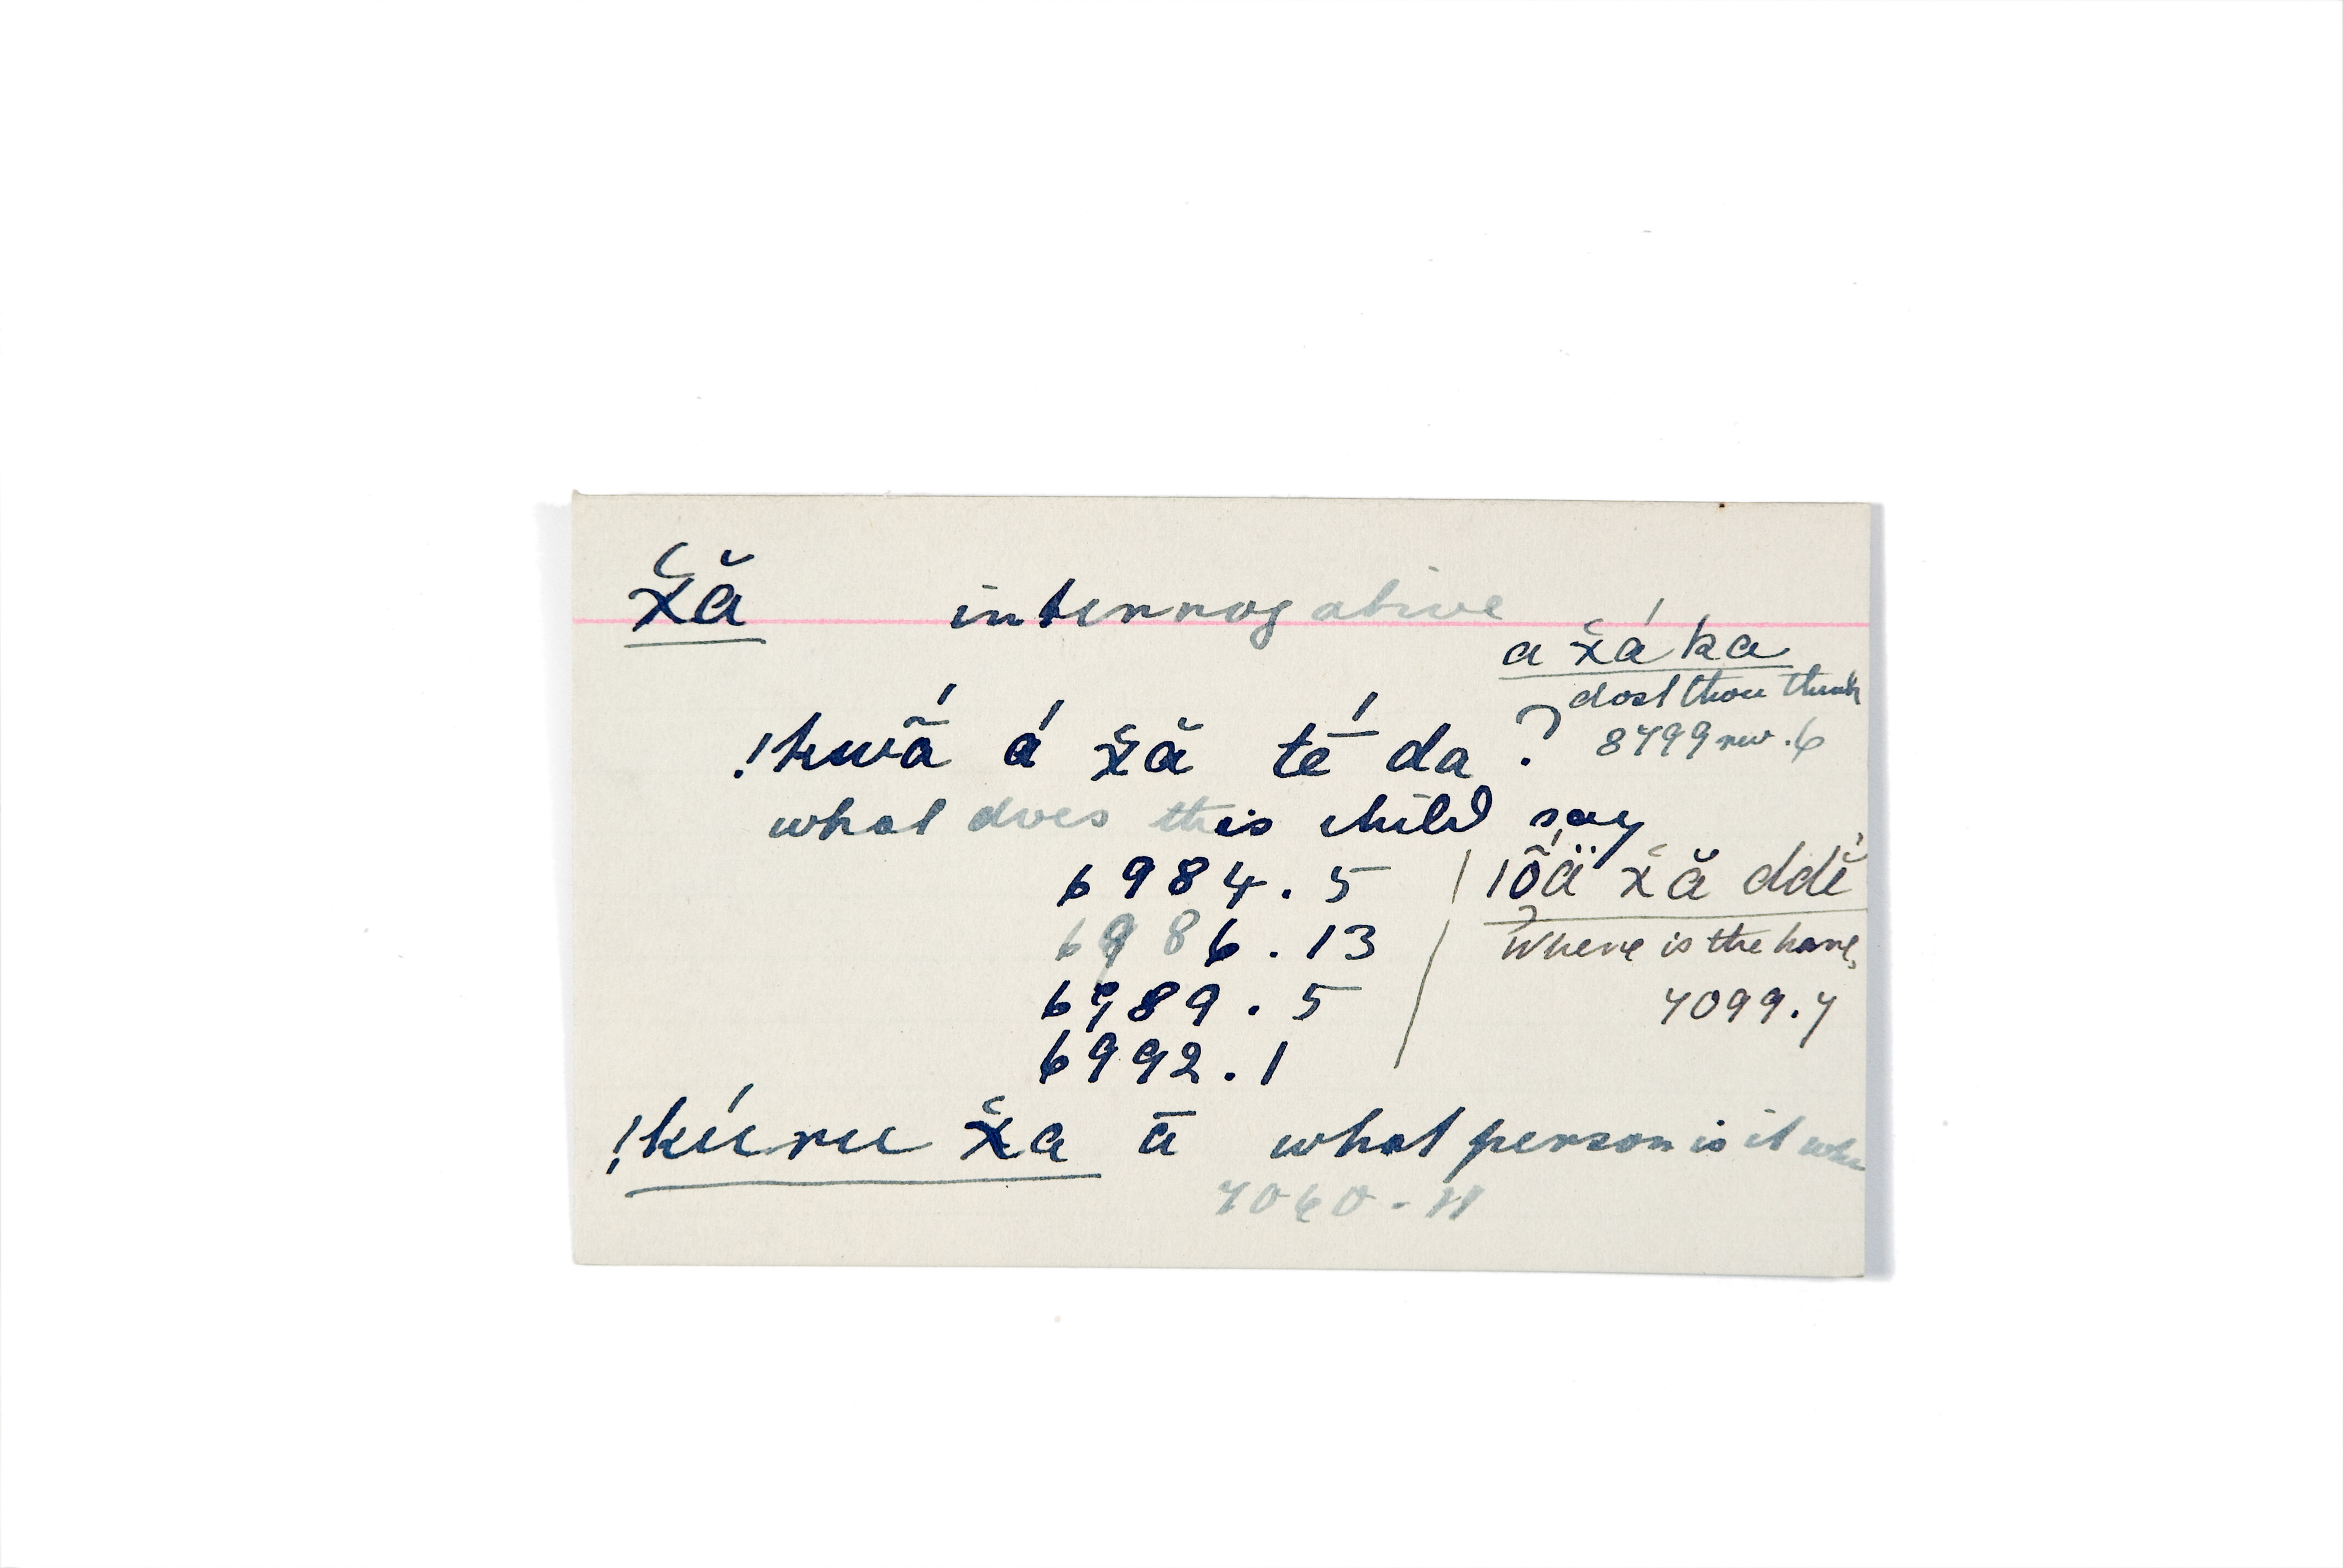 x̌ă interrogative
a x̌á ka
dost thou think
8799 rev. 6
!kwã́ á x̌ă tḗ da ?
what does this child say
6984.5
6986.13
6989.5
6992.1
|ṓä x̌ă ddĕ́
Where is the hare,
7099.7
!kúru x̌a ā what person is it who
7060-11